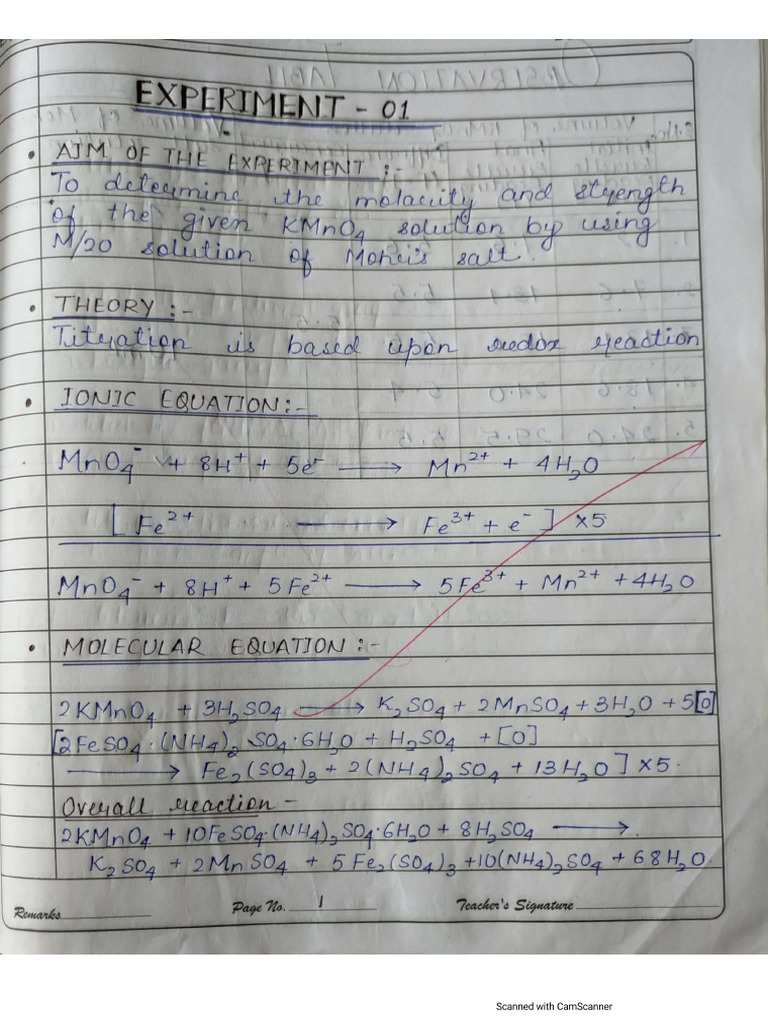 EXPERIMENT - 01
• AIM OF THE EXPERIMENT :-
To determine the molarity and strength
of the given KMnO₄ solution by using
M/20 solution of Mohr's salt.
• THEORY :-
Titration is based upon redox reaction
• IONIC EQUATION:-
MnO₄⁻ + 8H⁺ + 5e⁻ ⟶ Mn²⁺ + 4H₂O
[ Fe²⁺ ⟶ Fe³⁺ + e⁻ ] ×5
MnO₄⁻ + 8H⁺ + 5Fe²⁺ ⟶ 5Fe³⁺ + Mn²⁺ + 4H₂O
• MOLECULAR EQUATION :-
2KMnO₄ + 3H₂SO₄ ⟶ K₂SO₄ + 2MnSO₄ + 3H₂O + 5[O]
[2FeSO₄·(NH₄)₂SO₄·6H₂O + H₂SO₄ + [O]
⟶ Fe₂(SO₄)₃ + 2(NH₄)₂SO₄ + 13H₂O ] ×5.
Overall reaction -
2KMnO₄ + 10FeSO₄·(NH₄)₂SO₄·6H₂O + 8H₂SO₄ ⟶
K₂SO₄ + 2MnSO₄ + 5Fe₂(SO₄)₃ +10(NH₄)₂SO₄ + 68H₂O.
Remarks Page No. 1 Teacher's Signature
Scanned with CamScanner